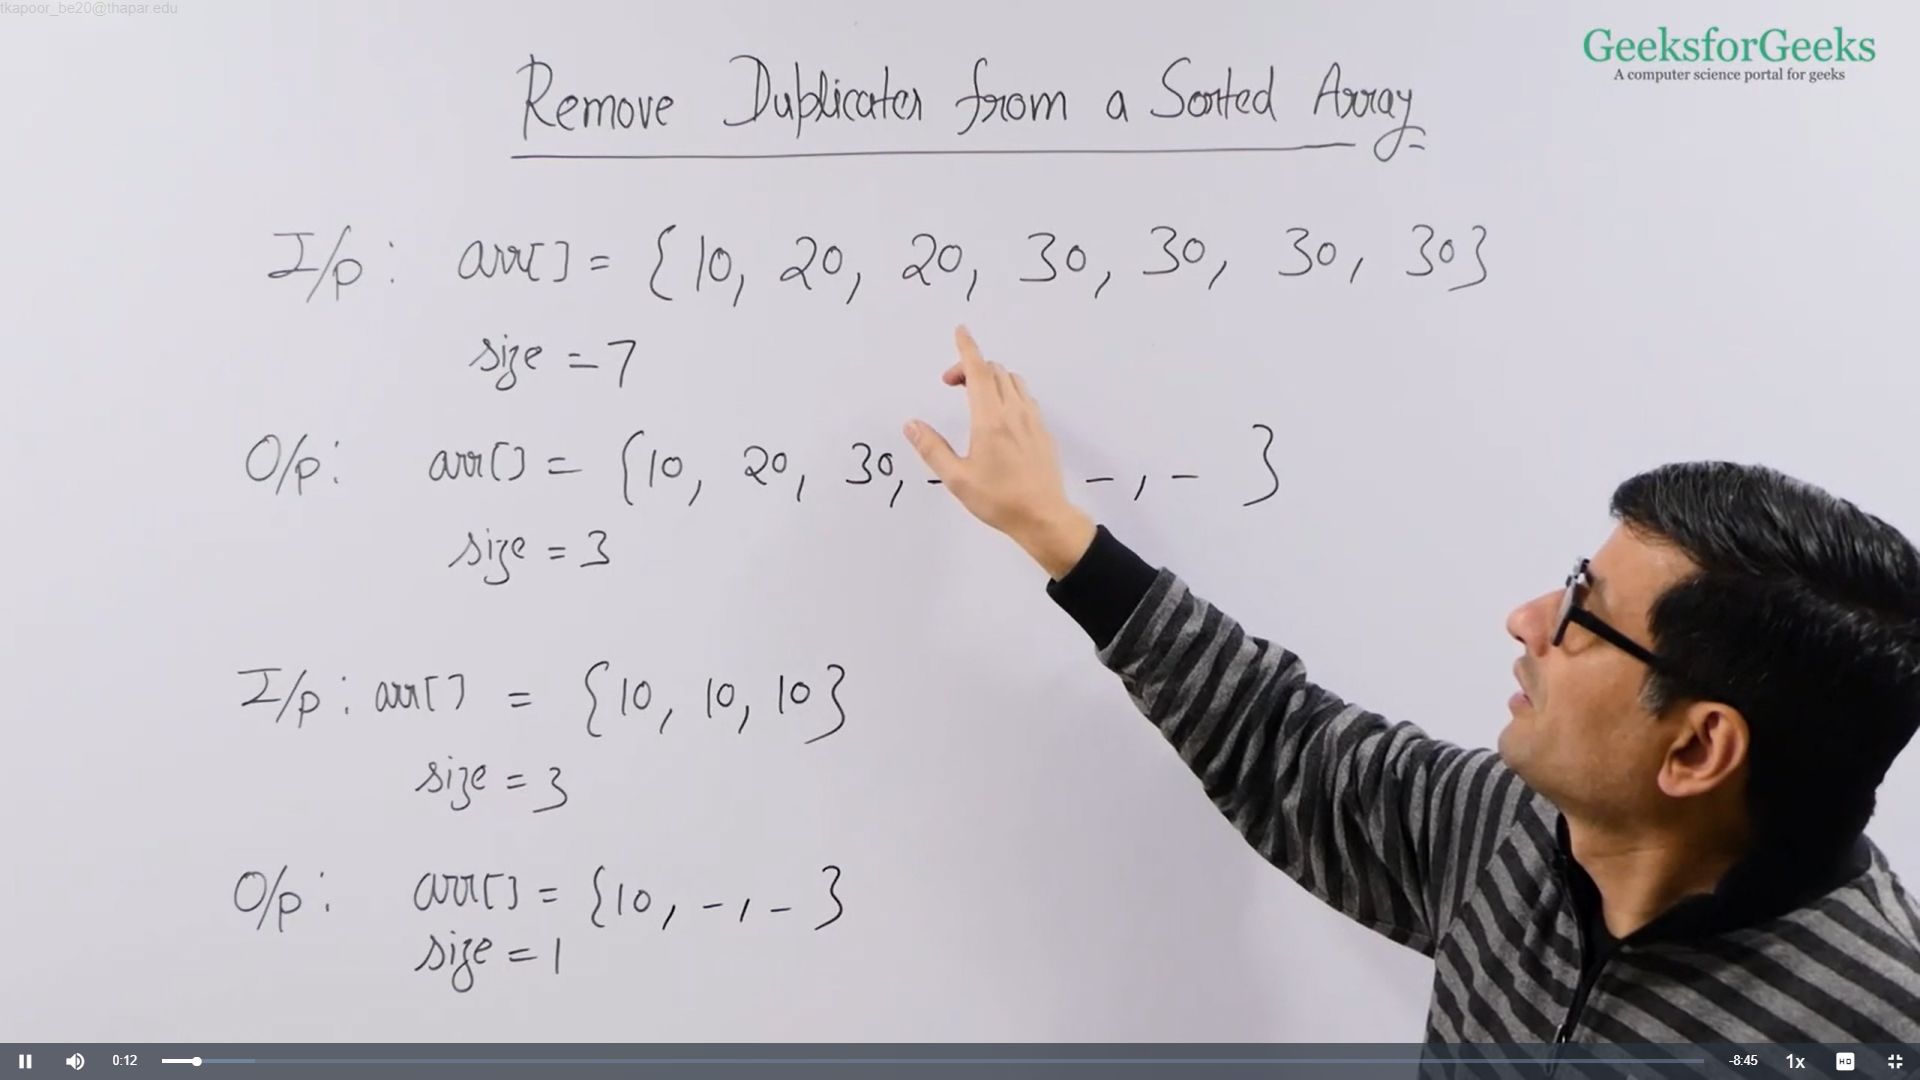 tkapoor_be20@thapar.edu
GeeksforGeeks
A computer science portal for geeks
Remove Duplicates from a Sorted Array
I/p : arr[] = {10, 20, 20, 30, 30, 30, 30}
size = 7
O/p : arr[] = {10, 20, 30, - - , - }
size = 3
I/p : arr[] = {10, 10, 10}
size = 3
O/p : arr[] = {10, - , - }
size = 1
0:12
-8:45
1x
HD